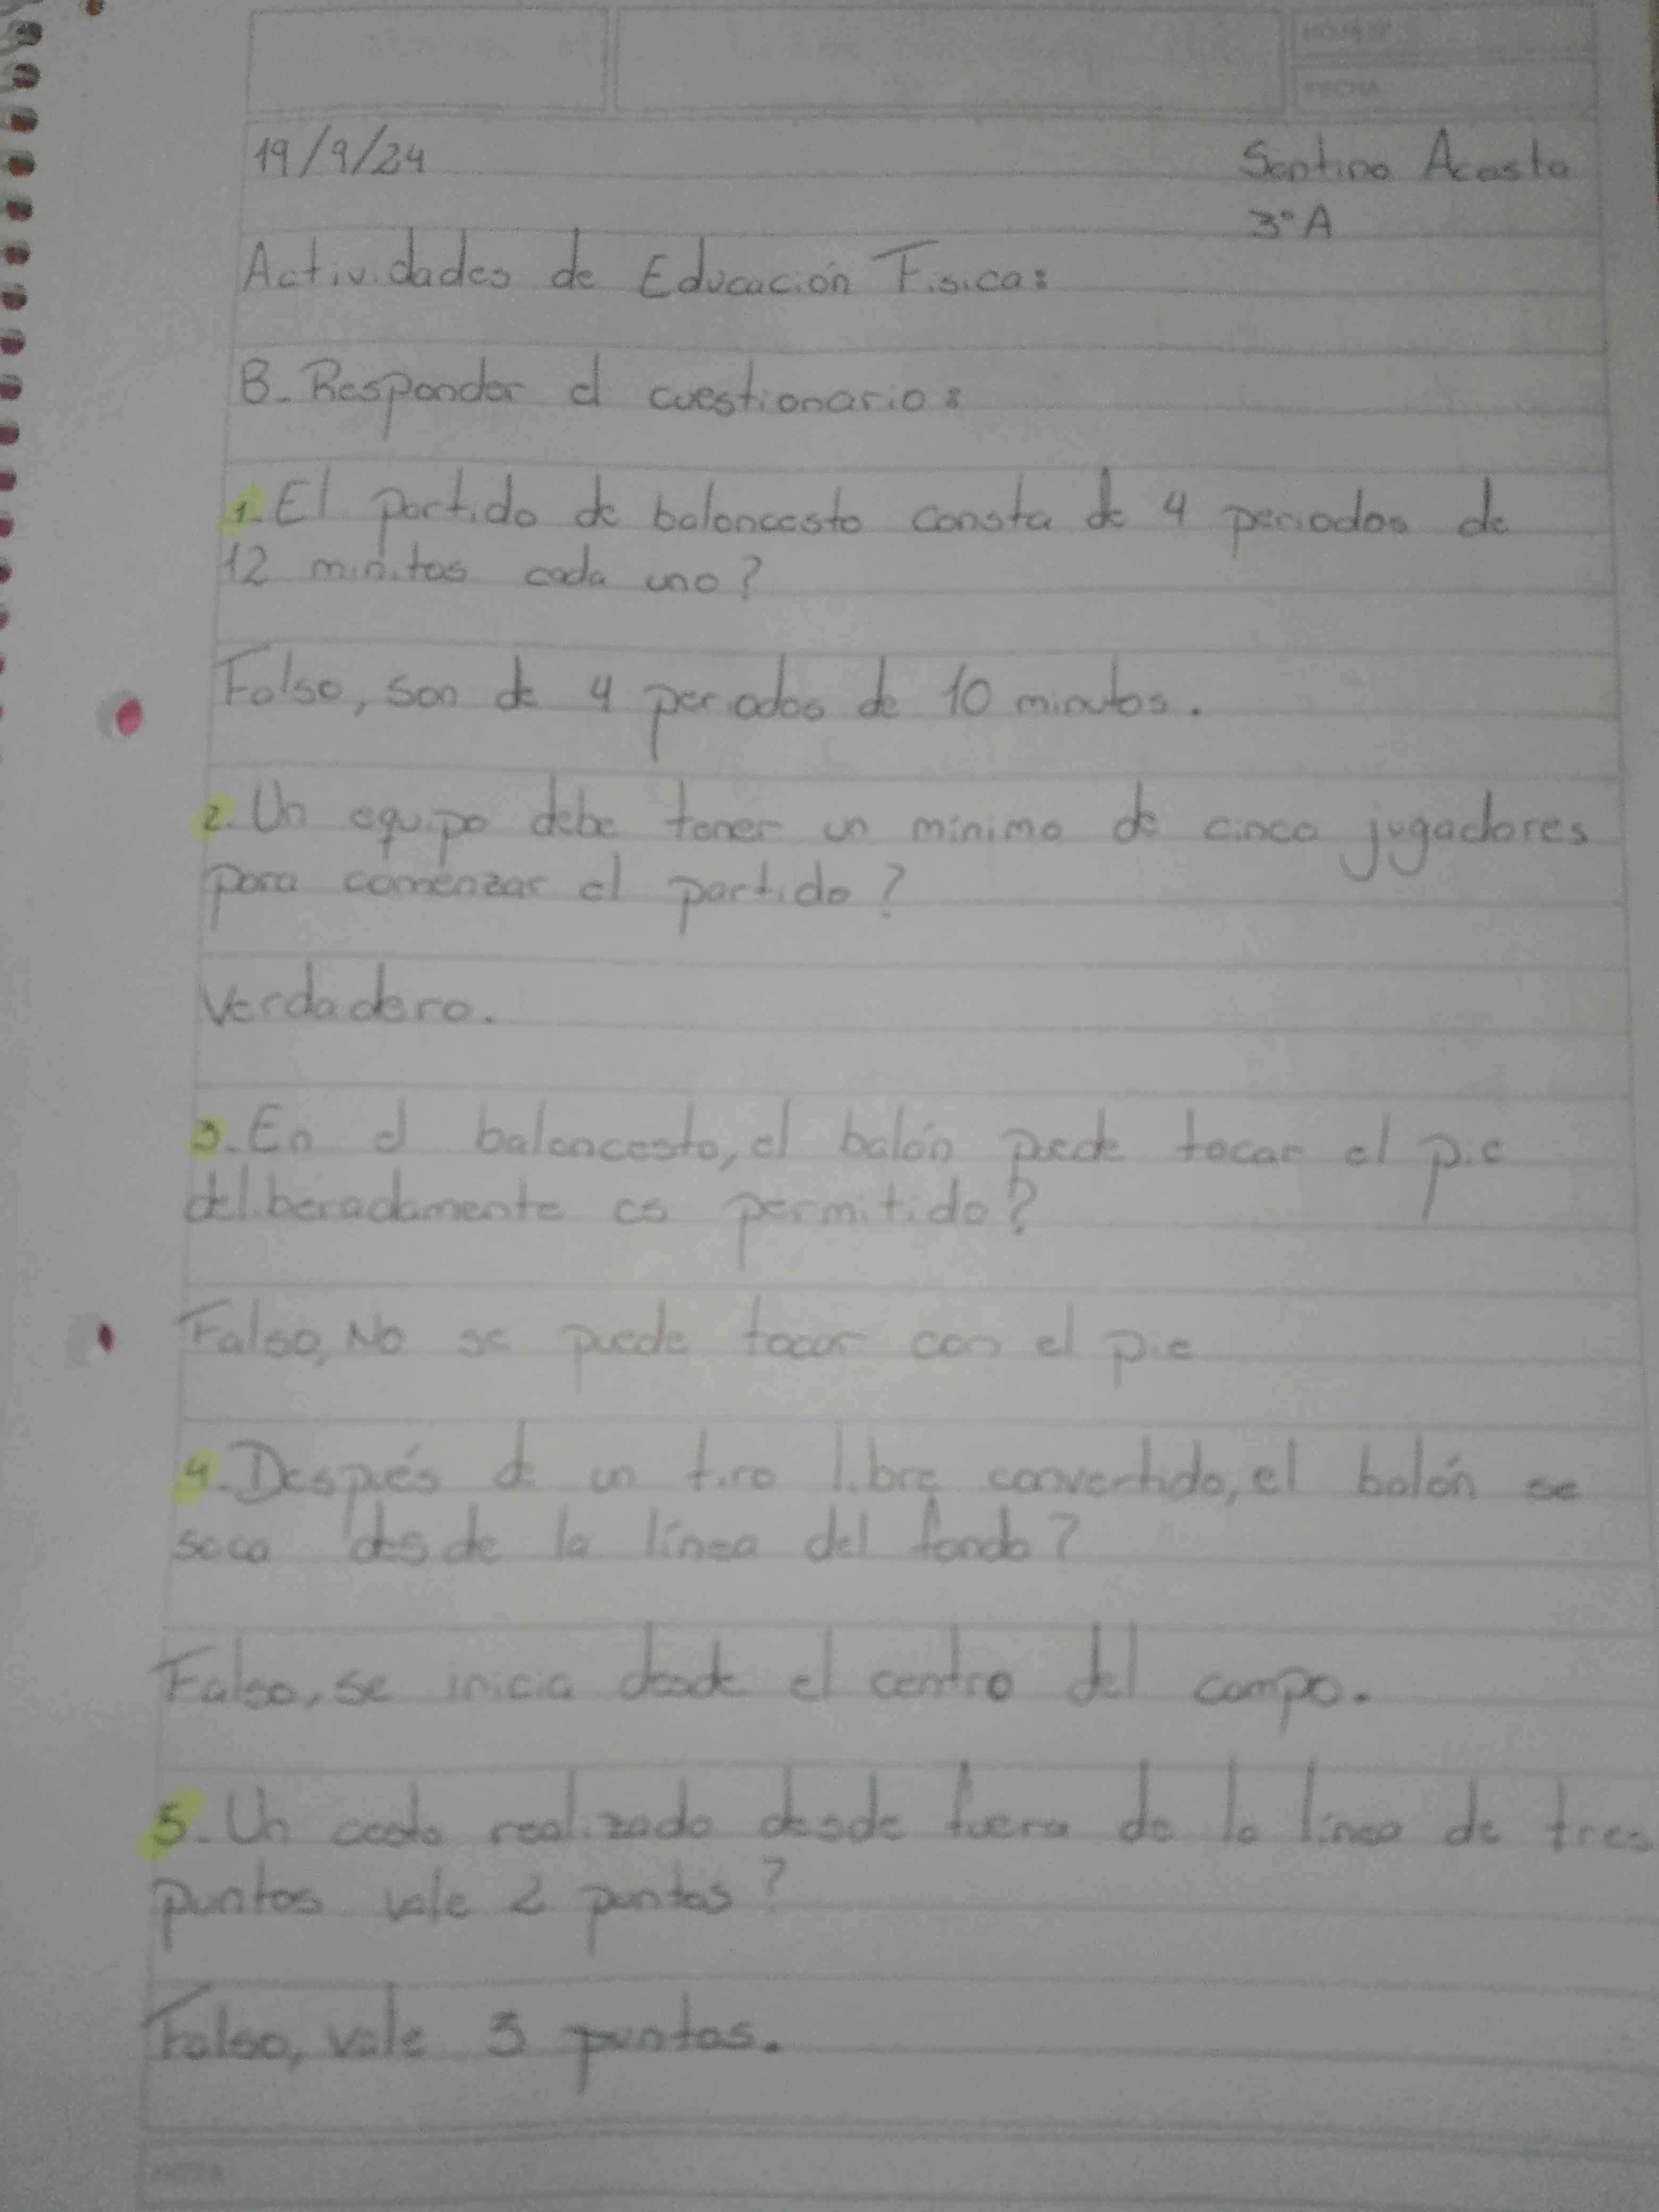 HOJA Nº
FECHA
19/9/24
Santino Acosta
3° A
Actividades de Educación Fisica:
B- Responder el cuestionario:
1. El partido de baloncesto consta de 4 periodos de
12 minitos cada uno?
Falso, son de 4 periodos de 10 minutos.
2. Un equipo debe tener un mínimo de cinco jugadores
para comenzar el partido?
Verdadero.
3. En el baloncesto, el balón puede tocar el pie
deliberadamente es permitido?
Falso, No se puede tocar con el pie
4. Después de un tiro libre convertido, el balón se
saca desde la línea del fondo?
Falso, se inicia desde el centro del campo.
5. Un cesto realizado desde fuera de la línea de tres
puntos vale 2 puntos?
Falso, vale 3 puntos.
NOTA